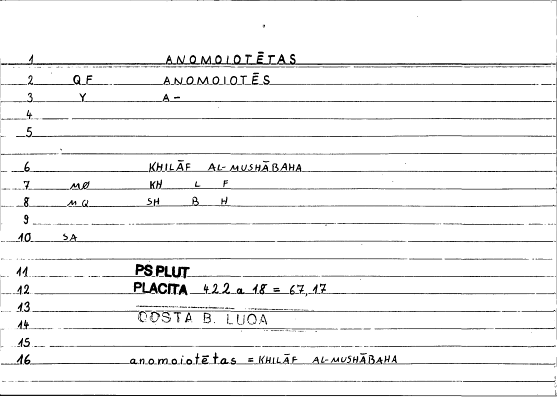 1 ANOMOIOTĒTAS
2 QF ANOMOIOTĒS
3 Y A-
4
5
6 KHILĀF AL-MUSHĀBAHA
7 MØ KH L F
8 MQ SH B H
9
10 SA
11 PS PLUT
12 PLACITA 422 a 18 = 67,17
13
14 COSTA B. LUQA
15
16 anomoiotētas = KHILĀF AL-MUSHĀBAHA